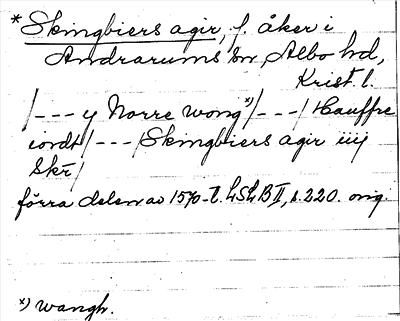 * Skingbiers agir, f. åker i
Andrarums sn, Albo hd,
Krist. l.
/--- y Norre wong x)/---/ Hauffre
iordt/---/Skingbiers agir iiij
Skr/
förra delen av 1570-t. LSLB II, s. 220. orig.
x) wangh.